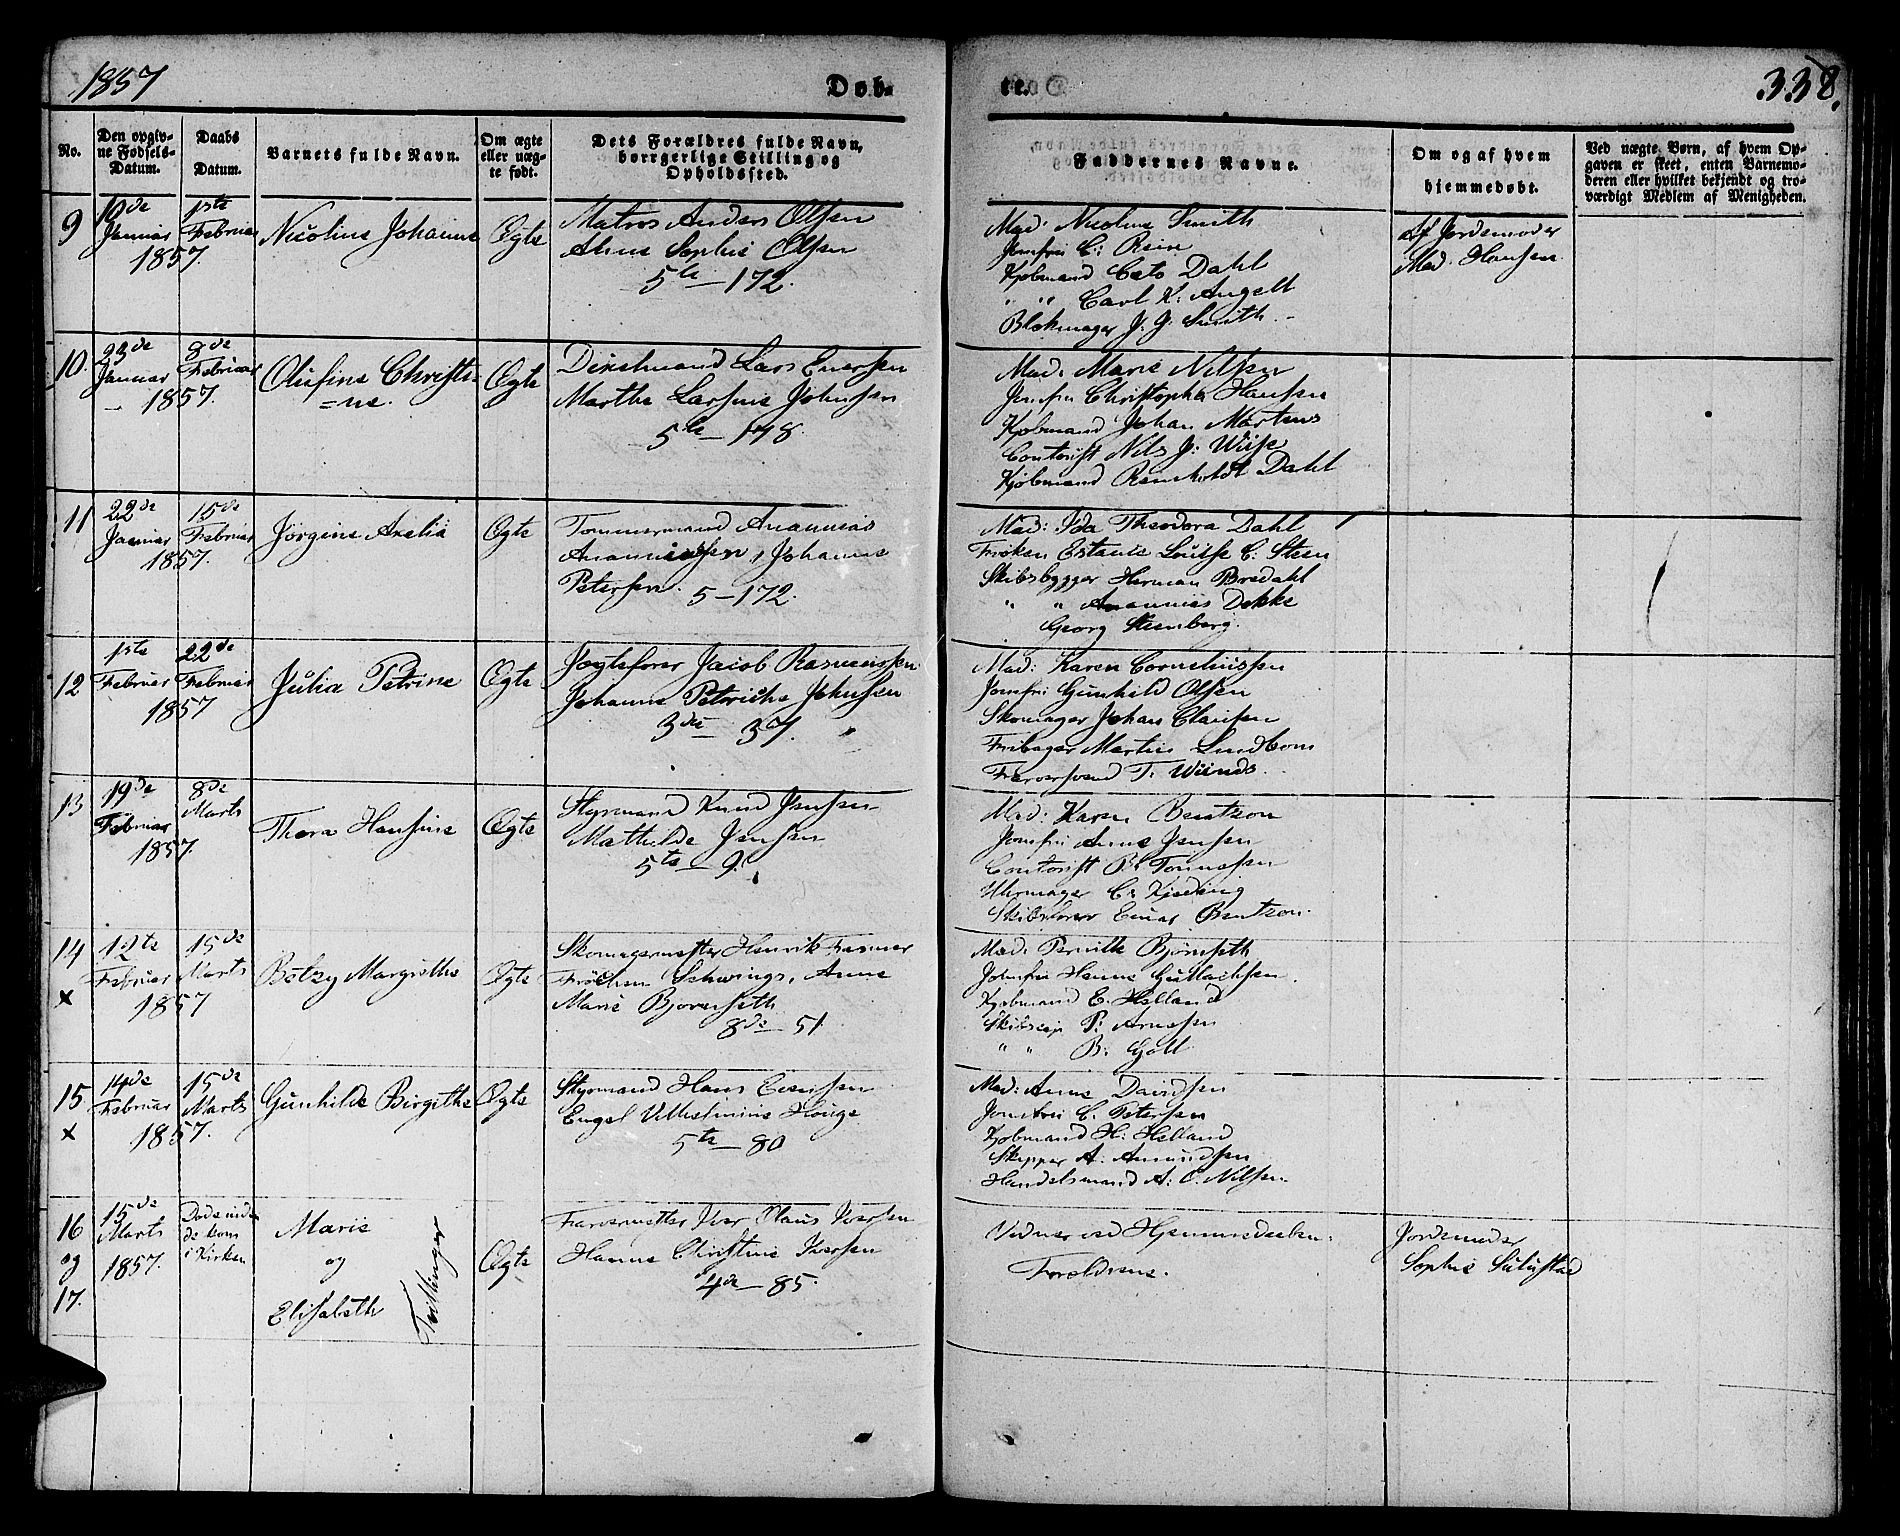 1857
Døb-
te.
338.
No.
Den opgiv-
ne Fødsels-
Datum.
Daabs
Datum.
Barnets fulde Navn.
Om ægte
eller uæg-
te født.
Dets Forældres fulde Navn,
borgerlige Stilling og
Opholdssted.
Faddernes Navne.
Om og af hvem
hjemmedøbt.
Ved uægte Børn, af hvem Op-
gaven er skeet, enten Barnemo-
deren eller hvilket bekjendt og tro-
værdigt Medlem af Menigheden.
9
10de
Januar
1857.
1ste
Februar
Nicoline Johanne
Ægte
Matros Anders Olsen
Sophie Olsen
5te - 172.
Mad. Nicoline Smith
Jomfru C: Rein
Kjøbmand Cato Dahl
" " Carl K: Angell
Blokmager J. J. Smith.
Af Jordemoder
Mad. Hansen
10.
23de
Januar
1857.
8de
Februar
Olufine Christi-
=ne.
Ægte
Lars Enersen
Marthe Larsine Johnsen
5te - 178.
Mad. Marie Nilsen
Jomfru Christopha Hansen
Kjøbmand Johan Martens
Contorist Nils J: Wiese
Kjøbmand Reinholdt Dahl
11
22de
Januar
1857.
15de
Februar
Jörgine Axelia
Ægte
Tømmermand Ananias
Ananiassen, Johanne
Petersen. 5 - 172.
Mad: Ida Theodora Dahl
Frøken Louise C: Steen
Skibsbygger Herman Bredahl
" " Ananias Dekke
Georg Steenberg.
12
1ste
Februar
1857
22de
Februar
Julia Petrine
Ægte
Jægtefører Jacob Rasmussen
Johanne Petricke Johnsen
3die 37.
Mad: Karen Corneliussen
Jomfru Gunhild Olsen
Skomager Johan Clausen
Martin Lindbom
Farversvend T. Wiinds.
13
19de
Februar
1857.
8de
Marts
Thora Hansine
Ægte
Styrmand Knud Jensen
Mathilde Jensen
5te - 9.
Mad: Karen Bentzon
Jomfru Anne Jensen
Contorist B: Tønnesen
Uhrmager C: Kjeding
Skibsfører Einar Bentzon.
14
x
12te
Februar
1857
15de
Marts
Betzy Margrethe
Ægte
Skomagermester Henrik Fasmer
Schwings, Anne
Marie Bjørnseth
8de - 51.
Mad. Pernille Bjørnseth
Jomfru Hanne Gullachsen
Kjøbmand E. Helland
P: Arnesen
" " B: Gøll
15
x
14de
Februar
1857.
15de
Marts
Gunhilde Birgithe
Ægte
Styrmand Hans Evensen
Engel Vilhelmine Houge
5te - 80
Mad: Anne Davidsen
Jomfru C. Petersen
Kjøbmand H: Helland
Skipper A. Amundsen
Handelsmand A: C. Nilsen
16
og
17.
15de
Marts
1857.
Døde inden
de kom
i Kirken
Marie
og
Elisabeth
Tvillinger
Ægte
Farvermester Iver Olaus Iversen
Hanne Christine Iversen
4de - 85.
Vidner ved Hjemmedaaben:
Forældrene.
Jordemoder
Sophie